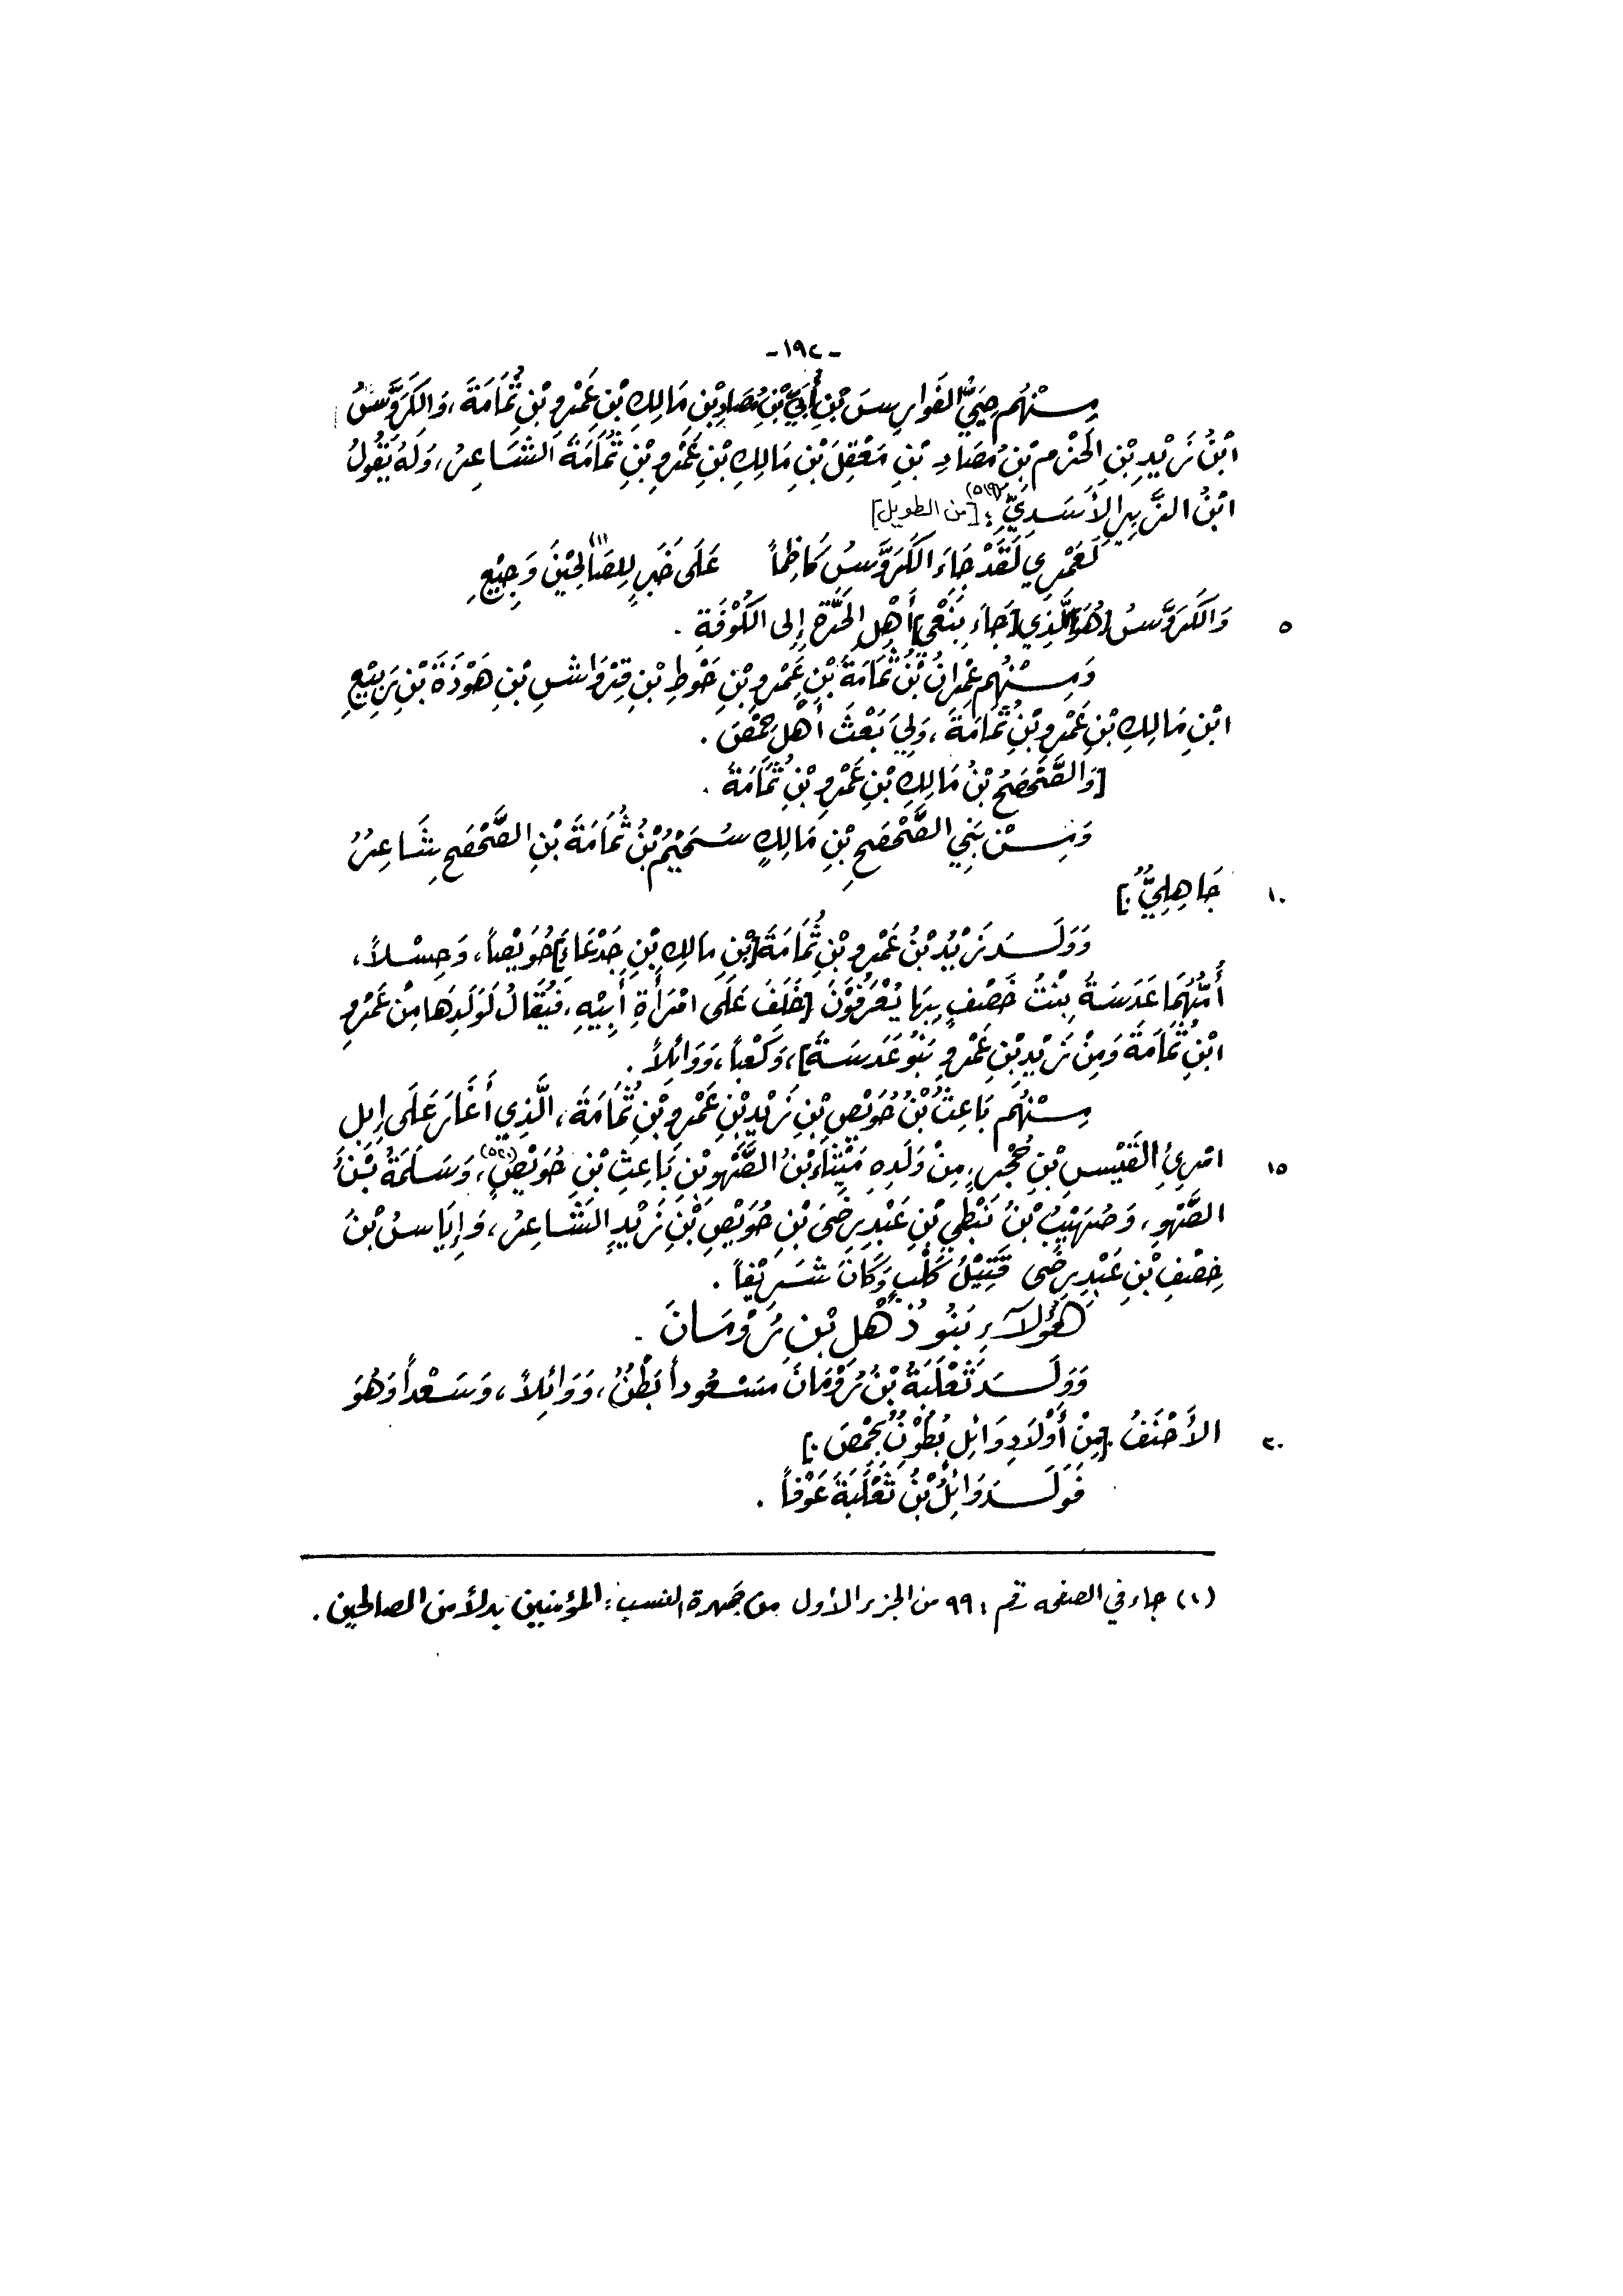 -١٩٢-
مِنْهُم حِيَيُّ الفَوارِسِ بْنِ أُبَيِّ بْنِ مَصَادِ بْنِ مَالِكِ بْنِ عَمْرِو بْنِ ثُمَامَةَ، وَالكَرَوَّسُ
ابْنُ زَيْدِ بْنِ الحَزْمِ بْنِ مَصَادِ بْنِ مَعْقِلَ بْنِ مَالِكِ بْنِ عَمْرِو بْنِ ثُمَامَةَ الشَّاعِرُ، وَلَهُ يَقُولُ
ابْنُ الزَّبِيرِ الأَسَدِيُّ (٥١٩): [من الطويل]
لَعَمْرِي لَقَدْ جَاءَ الكَرَوَّسُ كَاظِماً عَلَى خَبَرٍ لِلصَّالِحِيْنَ (١) وَجِيْعِ
وَالكَرَوَّسُ [هُوَ] الَّذِي [جَاءَ بِنَعْيِ] أَهْلِ الحَرَّةِ إِلى الكُوْفَةِ. ٥
وَمِنْهُم عِمْرانُ بْنُ ثُمَامَةَ بْنِ عَمْرِو بْنِ حَوْطِ بْنِ قِرْوَاشِ بْنِ هَوْذَةَ بْنِ رَبِيْعِ
ابْنِ مَالِكِ بْنِ عَمْرِو بْنِ ثُمَامَةَ، وَلِيَ بَعْثَ أَهْلِ حِمْصَ.
[وَالصَّحْصَحُ بْنُ مَالِكِ بْنِ عَمْرِو بْنِ ثُمَامَةَ.
وَمِنْ بَنِي الصَّحْصَحِ بْنِ مَالِكٍ سُحَيْمُ بْنُ ثُمَامَةَ بْنِ الصَّحْصَحِ شَاعِرٌ
جَاهِلِيٌّ.] ١٠
وَوَلَدَ زَيْدُ بْنُ عَمْرِو بْنِ ثُمَامَةَ [بْنِ مَالِكِ بْنِ جَدْعَاءَ] حُوَيْصاً، وَحِسْلاً،
أُمُّهُمَا عَدَسَةُ بِنْتُ خَصْفٍ بِهَا يُعْرَفُوْنَ [خَلَفَ عَلَى امْرَأَةِ أَبِيْهِ، فَيُقَالُ لِوَلَدِهَا مِنْ عَمْرِو
ابْنِ ثُمَامَةَ وَمِنْ زَيْدِ بْنِ عَمْرٍو بَنُو عَدَسَةَ]، وَكَعْباً، وَوَائِلاً.
مِنْهُم بَاعِثُ بْنُ حُوَيْصِ بْنِ زَيْدِ بْنِ عَمْرِو بْنِ ثُمَامَةَ، الَّذِي أَغَارَ عَلَى إِبِلِ
امْرِئِ القَيْسِ بْنِ حُجْرٍ، مِنْ وَلَدِهِ مَيْثَاءُ بْنُ الصَّهْوِ بْنِ بَاعِثِ بْنِ حُوَيْصٍ (٥٢٠)، وَسَلَمَةُ بْنُ ١٥
الصَّهْوِ، وَصُهَيْبُ بْنُ نَبْطِيِ بْنِ عَبْدِ رِضَى بْنِ حُوَيْصِ بْنِ زَيْدٍ الشَّاعِرُ، وَإِيَاسُ بْنُ
خِصْفِ بْنِ عَبْدِ رِضَى قَتِيْلُ كَلْبٍ وَكَانَ شَرِيْفاً.
هَؤُلاَءِ بَنُو ذُهْلِ بْنِ رُوْمَانَ.
وَوَلَدَ ثَعْلَبَةُ بْنُ رُوْمَانَ مَسْعُوداً بَطْنٌ، وَوَائِلاً، وَسَعْداً وَهُوَ
الأَحْنَفُ. [مِنْ أَوْلاَدِ وَائِلِ بُطُوْنٌ بِحِمْصَ.] ٢٠
فَوَلَدَ وَائِلُ بْنُ ثَعْلَبَةَ عَوْفاً.
(١) جاء في الصفحه رقم: ٩٩ من الجزء الأول من جمهرة النسب: المؤمنين بدلاً من الصالحين.